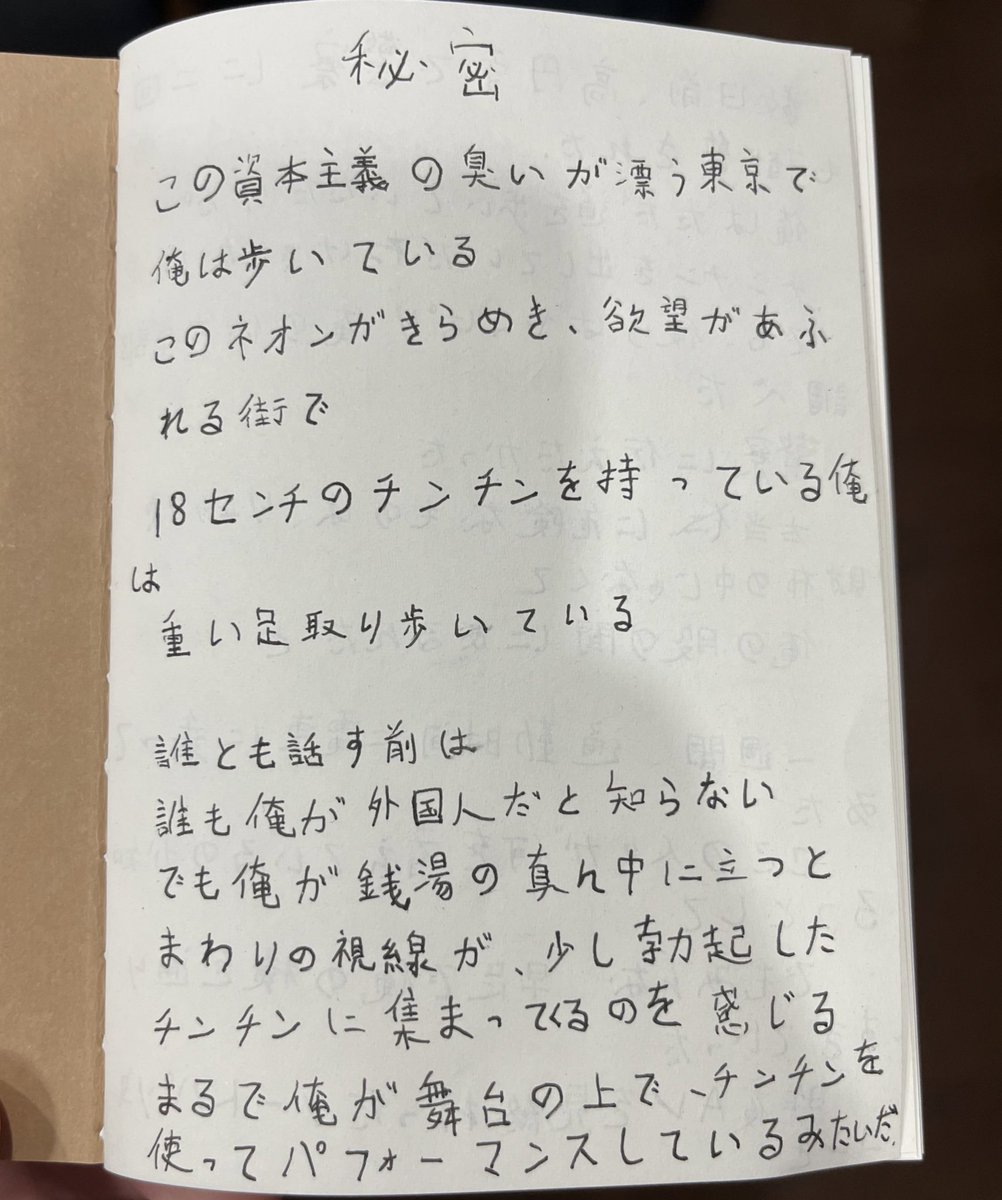 秘密
この資本主義の臭いが漂う東京で
俺は歩いている
このネオンがきらめき、欲望があふ
れる街で
18センチのチンチンを持っている俺
は
重い足取り歩いている
誰とも話す前は
誰も俺が外国人だと知らない
でも俺が銭湯の真ん中に立つと
まわりの視線が、少し勃起した
チンチンに集まってくるのを感じる
まるで俺が舞台の上で、チンチンを
使ってパフォーマンスしているみたいだ.